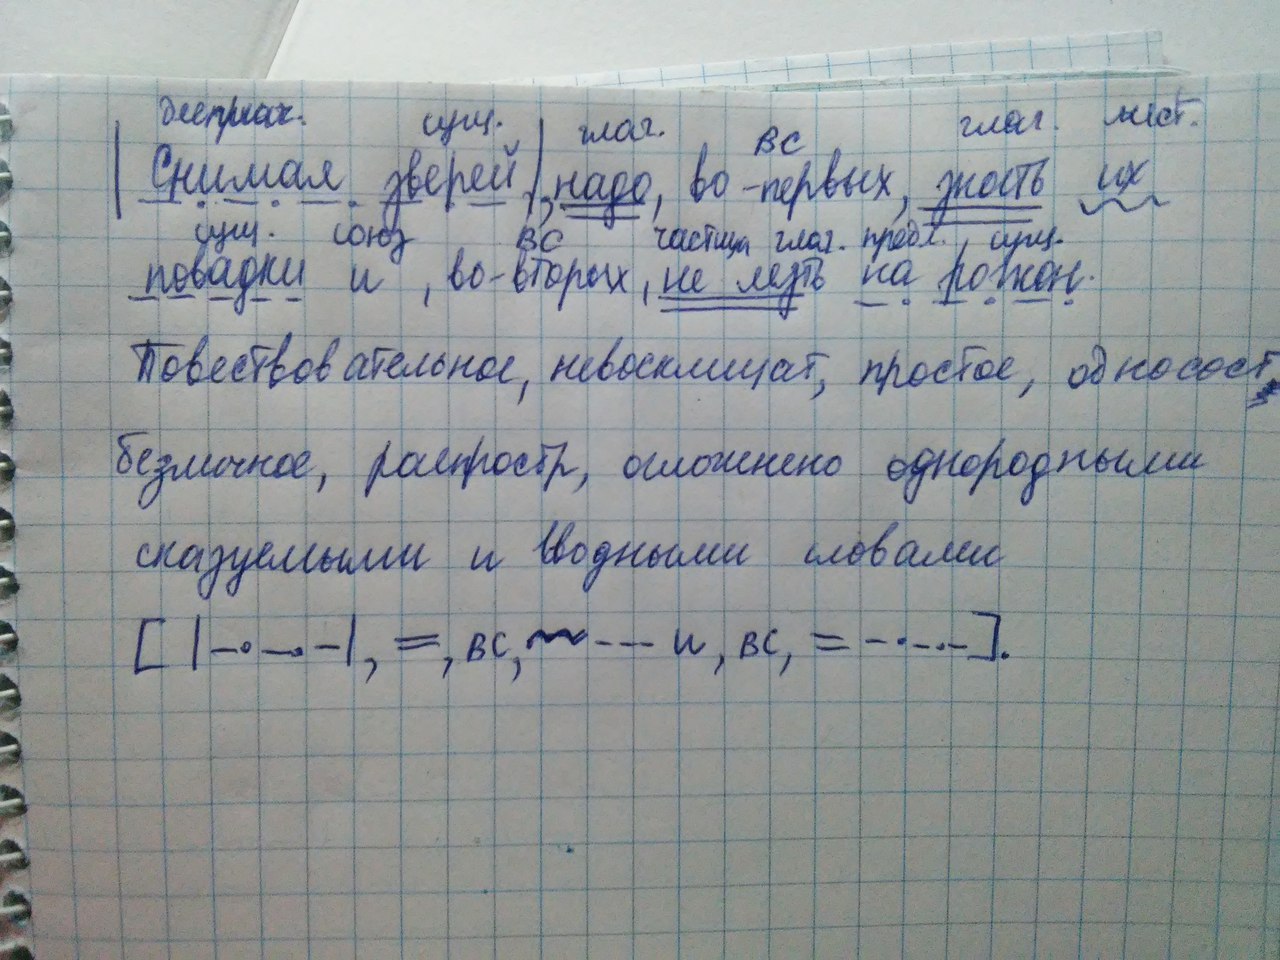 дееприч. сущ. глаг. ВС глаг. мест.
|Снимая зверей|, надо, во-первых, знать их
сущ. союз ВС частица глаг. предл. сущ.
повадки и, во-вторых, не лезть на рожон.
Повествовательное, невосклицат, простое, односост,
безличное, распростр, осложнено однородными
сказуемыми и вводными словами
[|-·-·-|, =, ВС, ~ --- и, ВС, = -·-·-].